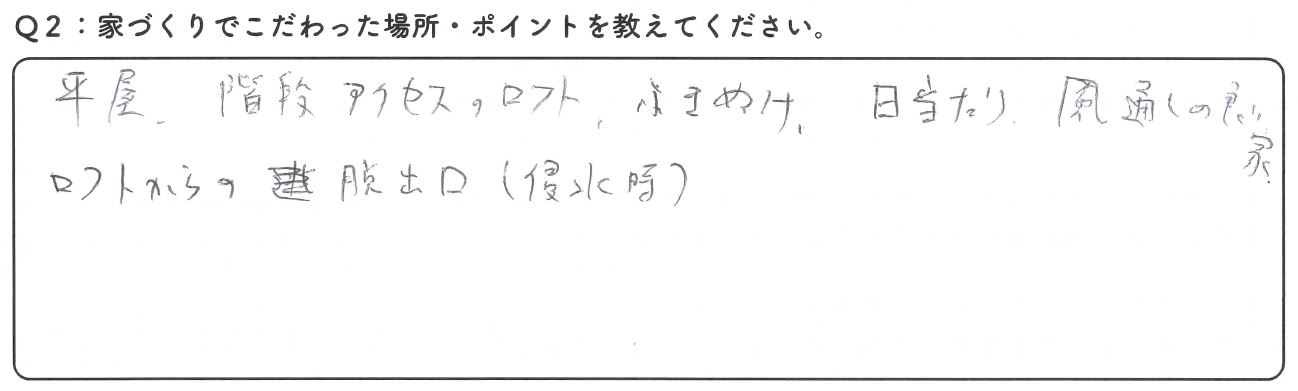 Q2：家づくりでこだわった場所・ポイントを教えてください。
平屋、階段アクセスのロフト、ふきぬけ、日当たり、風通しの良い家。
ロフトからの脱出口（侵水時）